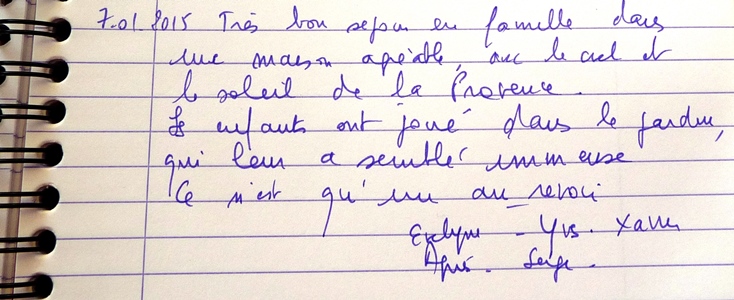 7.01.2015 Très bon séjour en famille dans
une maison agréable, avec le ciel et
le soleil de la Provence.
Les enfants ont joué dans le jardin,
qui leur a semblé immense
Ce n'est qu'un au_revoir
Evelyne - Yves. Xavier
Serge.